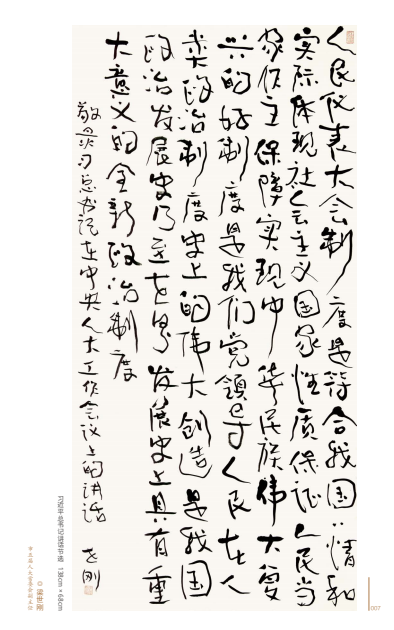 人民代表大会制度是符合我国〻情和
实际体现社会主义国家性质保证人民当
家作主保障实现中华民族伟大复
兴的好制度是我们党领导人民在人
类政治制度史上的伟大创造是我国
政治发展史乃至世界发展史上具有重
大意义的全新政治制度
敬录习总书记在中央人大工作会议上的讲话 世刚
138cm×68cm
007